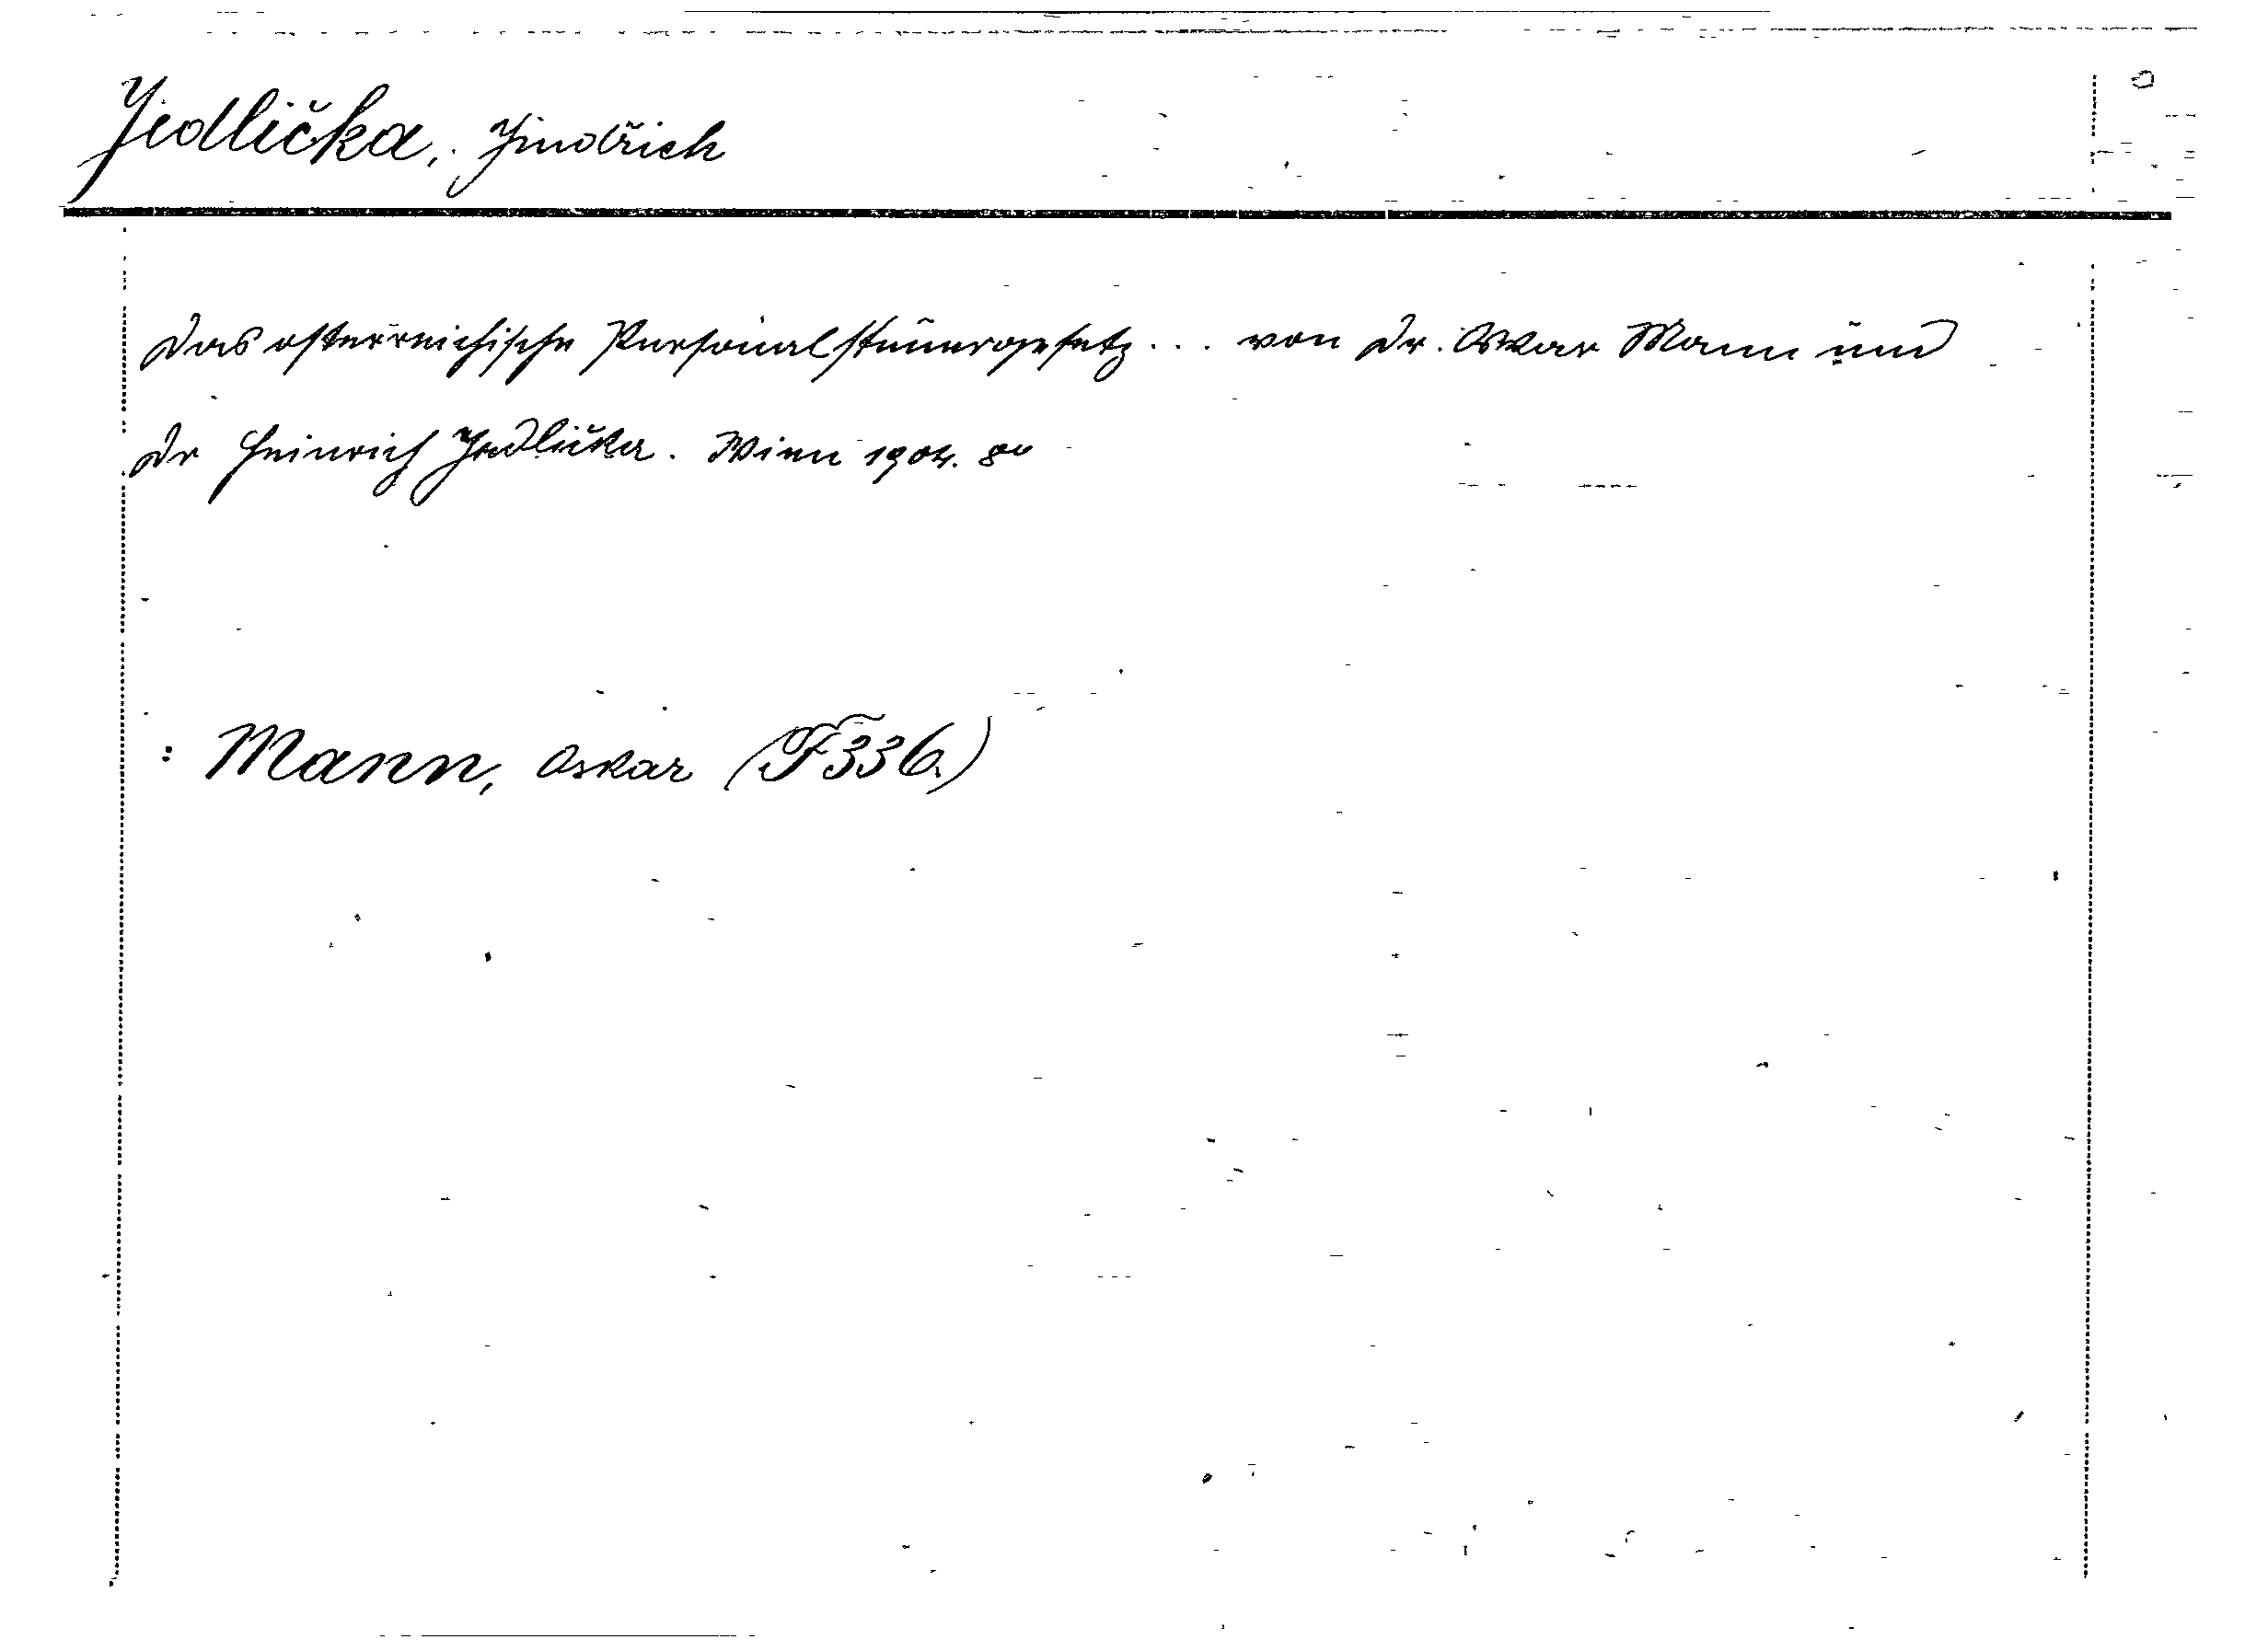 Jedlička, Jindřich
Das österreichische Personalsteuergesetz... von Dr. Oskar Mann und
Dr Heinrich Jedlička. Wien 1904. 8º
: Mann, Oskar (F336.)